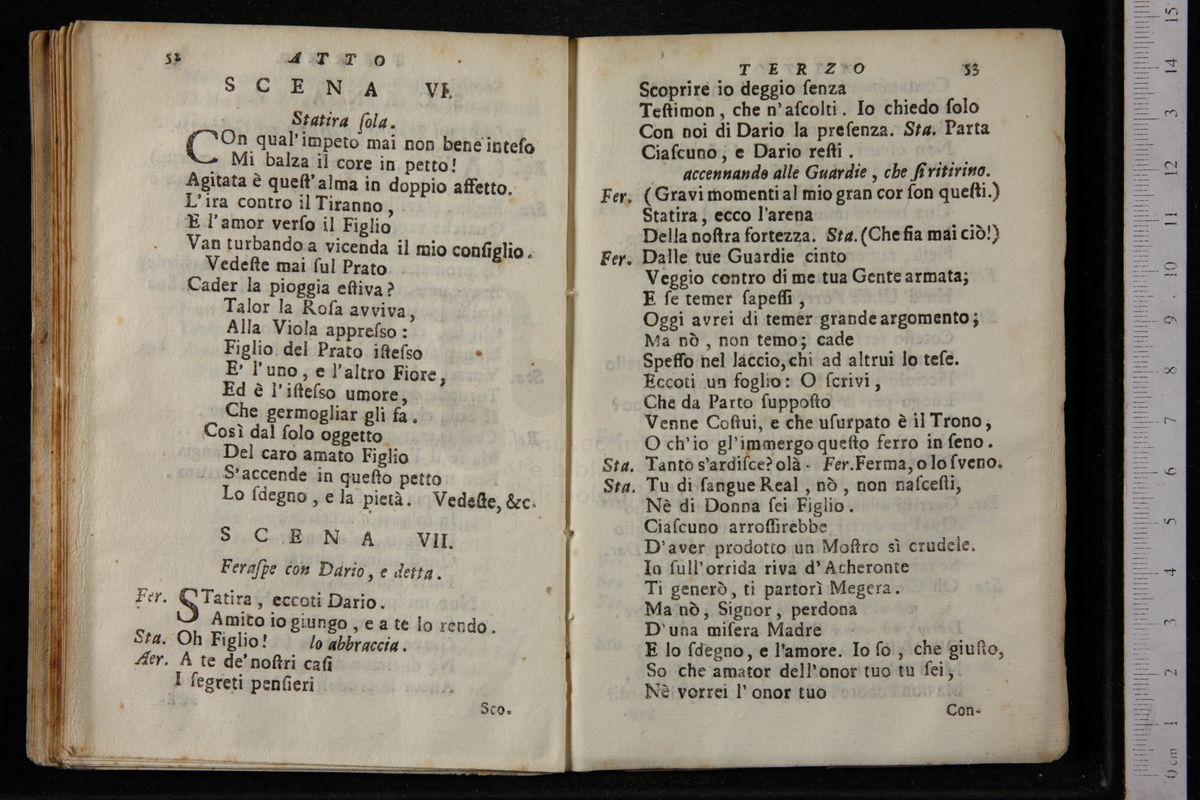 52 ATTO
SCENA VI.
Statira ſola.
COn qual' impeto mai non bene inteſo
Mi balza il core in petto!
Agitata è queſt' alma in doppio affetto.
L' ira contro il Tiranno,
E l'amor verſo il Figlio
Van turbando a vicenda il mio conſiglio.
Vedeſte mai ſul Prato
Cader la pioggia eſtiva?
Talor la Roſa avviva,
Alla Viola appreſso:
Figlio del Prato iſteſso
E' l'uno, e l'altro Fiore,
Ed è l'iſteſso umore,
Che germogliar gli fa.
Così dal ſolo oggetto
Del caro amato Figlio
S'accende in queſto petto
Lo ſdegno, e la pietà. Vedeſte, &c.
SCENA VII.
Feraſpe con Dario, e detta.
Fer. STatira, eccoti Dario.
Amico io giungo, e a te lo rendo.
Sta. Oh Figlio! lo abbraccia.
Aer. A te de' noſtri caſi
I ſegreti penſieri
Sco-
TERZO 53
Scoprire io deggio ſenza
Teſtimon, che n'aſcolti. Io chiedo ſolo
Con noi di Dario la preſenza. Sta. Parta
Ciaſcuno, e Dario reſti.
accennando alle Guardie, che ſi ritirino.
Fer. (Gravi momenti al mio gran cor ſon queſti.)
Statira, ecco l'arena
Della noſtra fortezza. Sta. (Che fia mai ciò!)
Fer. Dalle tue Guardie cinto
Veggio contro di me tua Gente armata;
E ſe temer ſapeſſi,
Oggi avrei di temer grande argomento;
Ma nò, non temo; cade
Speſſo nel laccio, chi ad altrui lo teſe.
Eccoti un foglio: O ſcrivi,
Che da Parto ſuppoſto
Venne Coſtui, e che uſurpato è il Trono,
O ch'io gl'immergo queſto ferro in ſeno.
Sta. Tanto s'ardiſce? olà - Fer. Ferma, o lo ſveno.
Sta. Tu di ſangue Real, nò, non naſceſti,
Nè di Donna ſei Figlio.
Ciaſcuno arroſſirebbe
D'aver prodotto un Moſtro sì crudele.
In ſull'orrida riva d'Acheronte
Ti generò, ti partorì Megera.
Ma nò, Signor, perdona
D'una miſera Madre
E lo ſdegno, e l'amore. Io ſo, che giuſto,
So che amator dell'onor tuo tu ſei,
Nè vorrei l'onor tuo
Con-